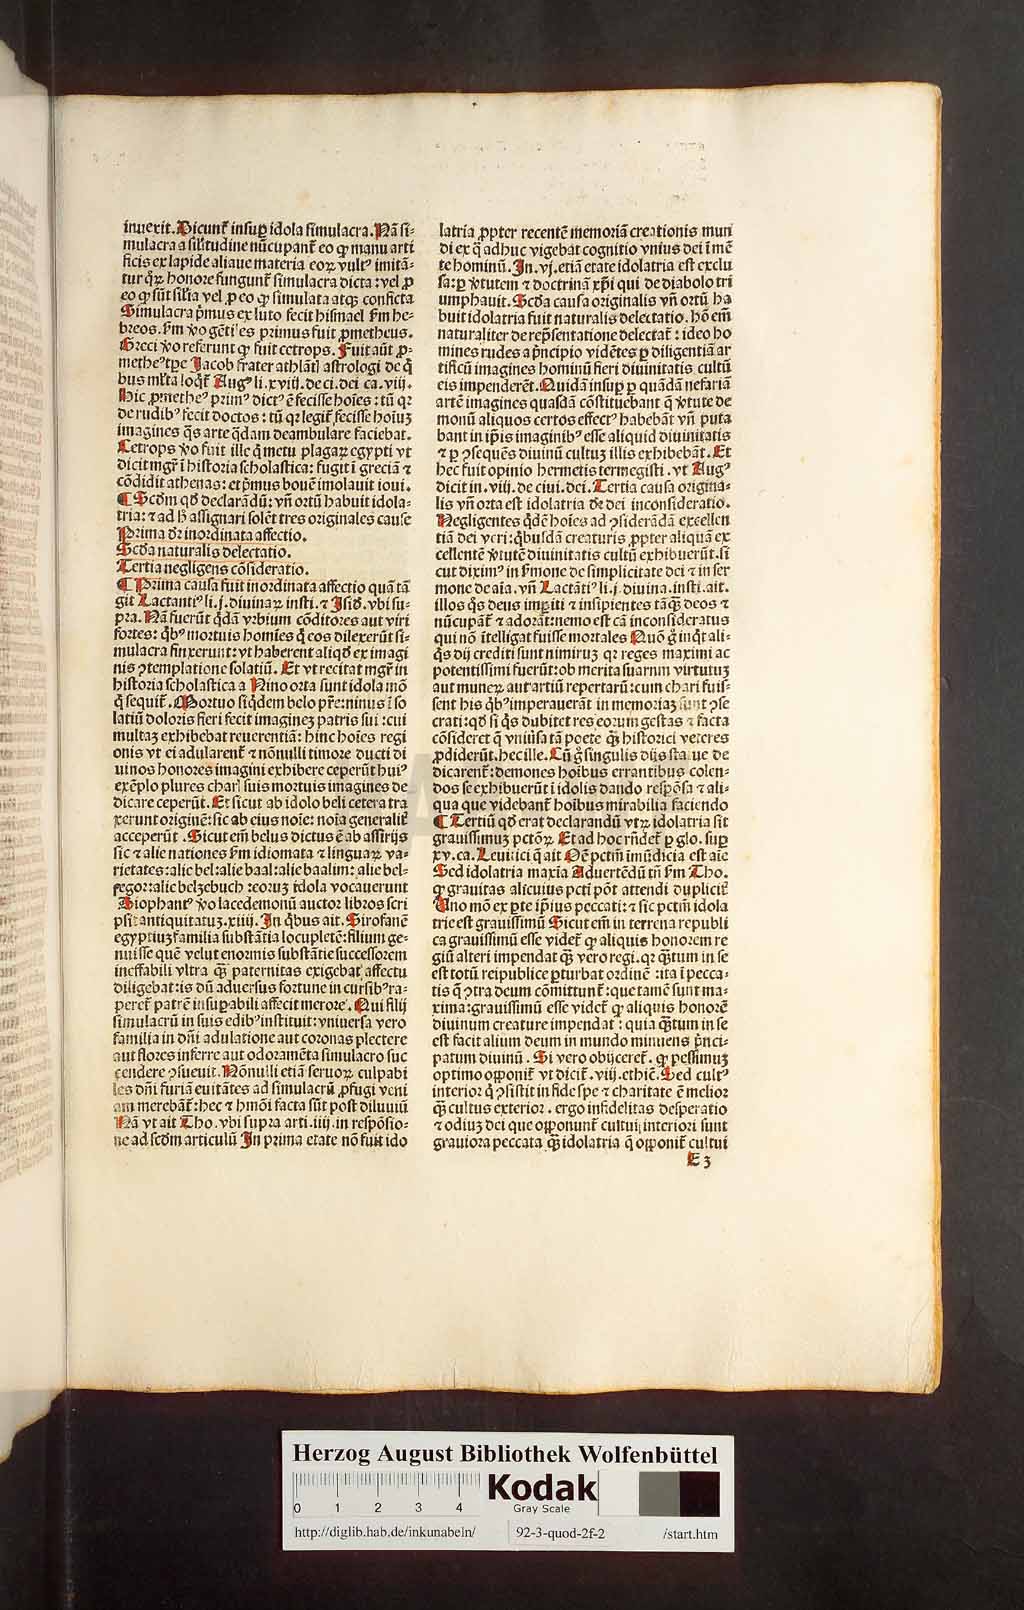 inuexit. Dicunt̃ insuꝑ idola simulacra. Nã si⸗
mulacra a silitudine nũcupant̃ eo ꝙ manu arti
ficis ex lapide aliaue materia eoꝝ vultꝰ imitã⸗
tur q̃ꝝ honore fungunt̃ simulacra dicta: vel ꝓ
eo ꝙ sũt silia vel ꝓ eo ꝙ simulata atqꝫ conficta
Simulacra p̃mus ex luto fecit hismael ẜm he⸗
breos. ẜm ṽo gẽtiles primus fuit ꝓmetheus.
Greci ṽo referunt ꝙ fuit cetrops. Fuit aũt ꝓ⸗
metheꝰ tꝑe Jacob frater athlãtꝭ astrologi de q̃
bus mĩta loqt̃ Augꝰ li. xviij. de ci. dei ca. viij.
Hic ꝓmetheꝰ primꝰ dictꝰ ẽ fecisse hoĩes: tũ qꝛ
de rudibꝰ fecit doctos: tũ qꝛ legit̃ fecisse hoĩuꝫ
imagines q̃s arte q̃dam deambulare faciebat.
Cetrops ṽo fuit ille q̃ metu plagaꝝ egypti vt
dicit mgr̃ ĩ historia scholastica: fugit ĩ greciã ⁊
cõdidit athenas: et p̃mus bouẽ imolauit ioui.
¶ Scd̃m qd̃ declarãdũ: vñ ortũ habuit idola⸗
tria: ⁊ ad h̃ assignari solẽt tres originales cause
Prima dr̃ inordinata affectio.
Scd̃a naturalis delectatio.
Tertia negligens cõsideratio.
¶ Prima causa fuit inordinata affectio quã tã
git Lactantiꝰ li. j. diuinaꝝ insti. ⁊ Isid̃. vbi su⸗
pra. Nã fuerũt q̃dã vrbium cõditores aut viri
fortes: q̃bꝰ mortuis homĩes q̃ eos dilexerũt si⸗
mulacra finxerunt: vt haberent aliqd̃ ex imagi
nis ꝯtemplatione solatiũ. Et vt recitat mgr̃ in
historia scholastica a Nino orta sunt idola mõ
q̃ sequit̃. Mortuo siq̃dem belo pr̃e: ninus ĩ so
latiũ doloris fieri fecit imagineꝫ patris sui: cui
multaꝫ exhibebat reuerentiã: hinc hoĩes regi
onis vt ei adularent̃ ⁊ nõnulli timore ducti di
uinos honores imagini exhibere ceperũt huiꝰ
exẽplo plures charis suis mortuis imagines de
dicare ceperũt. Et sicut ab idolo beli cetera tra
xerunt originẽ: sic ab eius noĩe: noĩa generalit̃
acceperũt. Sicut em̃ belus dictus ẽ ab assirijs
sic ⁊ alie nationes ẜm idiomata ⁊ linguaꝝ va⸗
rietates: alie bel: alie baal: alie baalim: alie bel⸗
fegor: alie belzebuch: eoruꝫ idola vocauerunt
Diophantꝰ ṽo lacedemonũ auctor libros scri
psit antiquitatuꝫ. xiiij. In q̃bus ait. Sirofanẽ
egyptiuꝫ familia substãtia locupletẽ: filium ge⸗
nuisse quẽ velut enormis substãtie successorem
ineffabili vltra qꝫ̃ paternitas exigebat affectu
diligebat: is dũ aduersus fortune in cursibꝰ ra⸗
peret̃ patrẽ insuꝑabili affecit merore. Qui filij
simulacrũ in suis edibꝰ instituit: vniuersa vero
familia in dñi adulatione aut coronas plectere
aut flores inferre aut odoramẽta simulacro suc
cendere ꝯsueuit. Nõnulli etiã seruoꝝ culpabi
les dñi furiã euitãtes ad simulacrũ ꝓfugi veni
am merebãt̃: hec ⁊ hm̃õi facta sũt post diluuiũ
Nã vt ait Tho. vbi supra arti. iiij. in respõsio⸗
ne ad scd̃m articulũ In prima etate nõ fuit ido
latria ꝓpter recentẽ memoriã creationis mun
di ex q̃ adhuc vigebat cognitio vnius dei ĩ mẽ
te hominũ. In. vj. etiã etate idolatria est exclu
sa: ꝑ ṽtutem ⁊ doctrinã xp̃i qui de diabolo tri
umphauit. Scd̃a causa originalis vñ ortũ ha
buit idolatria fuit naturalis delectatio. hõ em̃
naturaliter de rep̃sentatione delectat̃: ideo ho
mines rudes a p̃ncipio vidẽtes ꝑ diligentiã ar
tificũ imagines hominũ fieri diuinitatis cultũ
eis impenderẽt. Quidã insuꝑ ꝑ quãdã nefariã
artẽ imagines quasdã cõstituebant q̃ ṽtute de
monũ aliquos certos effectꝰ habebãt vñ puta
bant in ip̃is imaginibꝰ esse aliquid diuinitatis
⁊ ꝑ ꝯsequẽs diuinũ cultuꝫ illis exhibebãt. Et
hec fuit opinio hermetis termegisti. vt Augꝰ
dicit in. viij. de ciui. dei. Tertia causa origina⸗
lis vñ orta est idolatria dr̃ dei inconsideratio.
Negligentes q̃dẽ hoĩes ad ꝯsiderãdã excellen
tiã dei veri: q̃busdã creaturis ꝓpter aliquã ex
cellentẽ ṽtutẽ diuinitatis cultũ exhibuerũt. si
cut diximꝰ in ẜmone de simplicitate dei ⁊ in ser
mone de aĩa. vñ Lactãtiꝰ li. j. diuina. insti. ait.
illos q̃s deus imꝑiti ⁊ insipientes tãqꝫ̃ deos ⁊
nũcupãt̃ ⁊ adorãt: nemo est cã inconsideratus
qui nõ ĩtelligat fuisse mortales Quõ g̃ inq̃t ali⸗
q̃s dij crediti sunt nimiruꝫ qꝛ reges maximi ac
potentissimi fuerũt: ob merita suarum virtutuꝫ
aut muneꝝ aut artiũ repertarũ: cum chari fuis⸗
sent his q̃bꝰ imperauerãt in memoriaꝫ sunt ꝯse
crati: qd̃ si q̃s dubitet res eorum gestas ⁊ facta
cõsideret q̃ vniũsa tã poete qꝫ̃ historici veteres
ꝓdiderũt. hec ille. Cũ g̃ singulis dijs statue de
dicarent̃: demones hoibus errantibus colen⸗
dos se exhibuerũt ĩ idolis dando respõsa ⁊ ali⸗
qua que videbant̃ hoibus mirabilia faciendo
¶ Tertiũ qd̃ erat declarandũ vtꝝ idolatria sit
grauissimuꝫ pctõꝝ Et ad hoc rñdet̃ ꝑ glo. suꝑ
xv. ca. Leuitici q̃ ait Oẽ pctm̃ imũdicia est aĩe
Sed idolatria maxĩa Aduertẽdũ tñ ẜm Tho.
ꝙ grauitas alicuius pcti põt attendi duplicit̃
Uno mõ ex ꝑte ip̃ius peccati: ⁊ sic pctm̃ idola
trie est grauissimũ Sicut em̃ in terrena republi
ca grauissimũ esse videt̃ ꝙ aliquis honorem re
giũ alteri impendat qꝫ̃ vero regi. qꝛ q̃tum in se
est totũ reipublice ꝑturbat ordinẽ: ita ĩ pecca⸗
tis q̃ ꝯtra deum cõmittunt̃: que tamẽ sunt ma⸗
xima: grauissimũ esse videt̃ ꝙ aliquis honorẽ
diuinum creature impendat: quia q̃tum in se
est facit alium deum in mundo minuens p̃nci⸗
patum diuinũ. Si vero obijceret̃. ꝙ pessimuꝫ
optimo opponit̃ vt dicit̃. viij. ethic̃. Sed cultꝰ
interior q̃ ꝯsistit in fide spe ⁊ charitate ẽ melior
qꝫ̃ cultus exterior. ergo infidelitas desperatio
⁊ odiuꝫ dei que opponunt̃ cultui interiori sunt
grauiora peccata qꝫ̃ idolatria q̃ opponit̃ cultui
E 3
Herzog August Bibliothek Wolfenbüttel
0 1 2 3 4
Kodak
Gray Scale
http://diglib.hab.de/inkunabeln/ 92-3-quod-2f-2 /start.htm